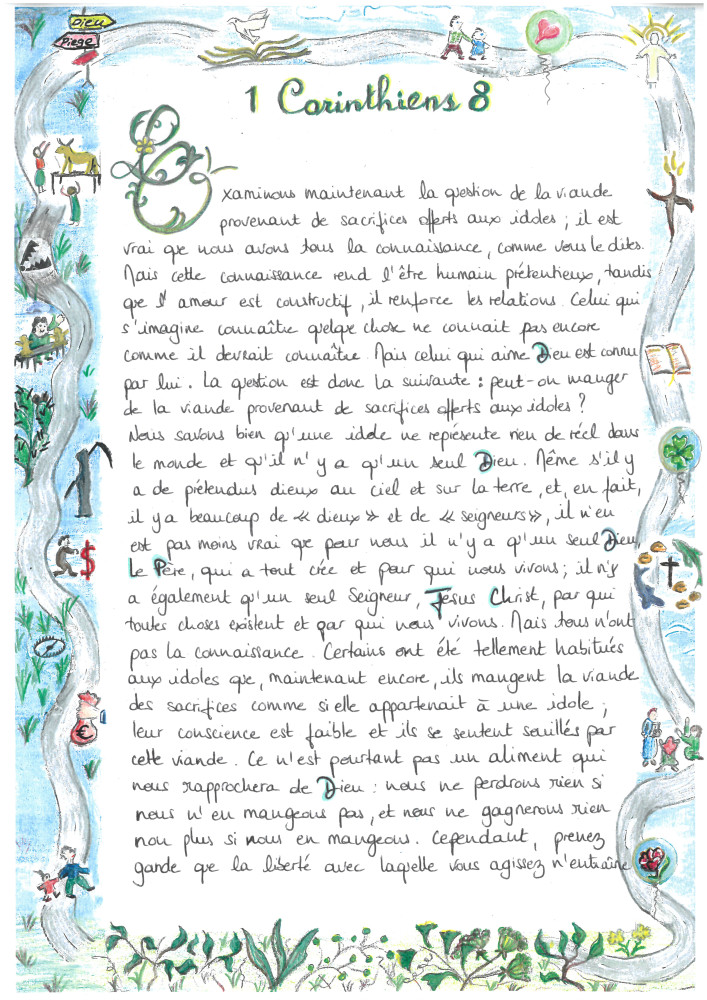 Dieu
Piège
1 Corinthiens 8
Examinons maintenant la question de la viande
provenant de sacrifices offerts aux idoles ; il est
vrai que nous avons tous la connaissance, comme vous le dites.
Mais cette connaissance rend l'être humain prétentieux, tandis
que l'amour est constructif, il renforce les relations. Celui qui
s'imagine connaître quelque chose ne connait pas encore
comme il devrait connaître. Mais celui qui aime Dieu est connu
par lui. La question est donc la suivante : peut-on manger
de la viande provenant de sacrifices offerts aux idoles ?
Nous savons bien qu'une idole ne représente rien de réel dans
le monde et qu'il n'y a qu'un seul Dieu. Même s'il y
a de prétendus dieux au ciel et sur la terre, et, en fait,
il y a beaucoup de « dieux » et de « seigneurs », il n'en
est pas moins vrai que pour nous il n'y a qu'un seul Dieu,
le Père, qui a tout crée et pour qui nous vivons ; il n'y
a également qu'un seul Seigneur, Jésus Christ, par qui
toutes choses existent et par qui nous vivons. Mais tous n'ont
pas la connaissance. Certains ont été tellement habitués
aux idoles que, maintenant encore, ils mangent la viande
des sacrifices comme si elle appartenait à une idole ;
leur conscience est faible et ils se sentent souillés par
cette viande. Ce n'est pourtant pas un aliment qui
nous rapprochera de Dieu : nous ne perdrons rien si
nous n'en mangeons pas, et nous ne gagnerons rien
non plus si nous en mangeons. Cependant, prenez
garde que la liberté avec laquelle vous agissez n'entraîne
$
€